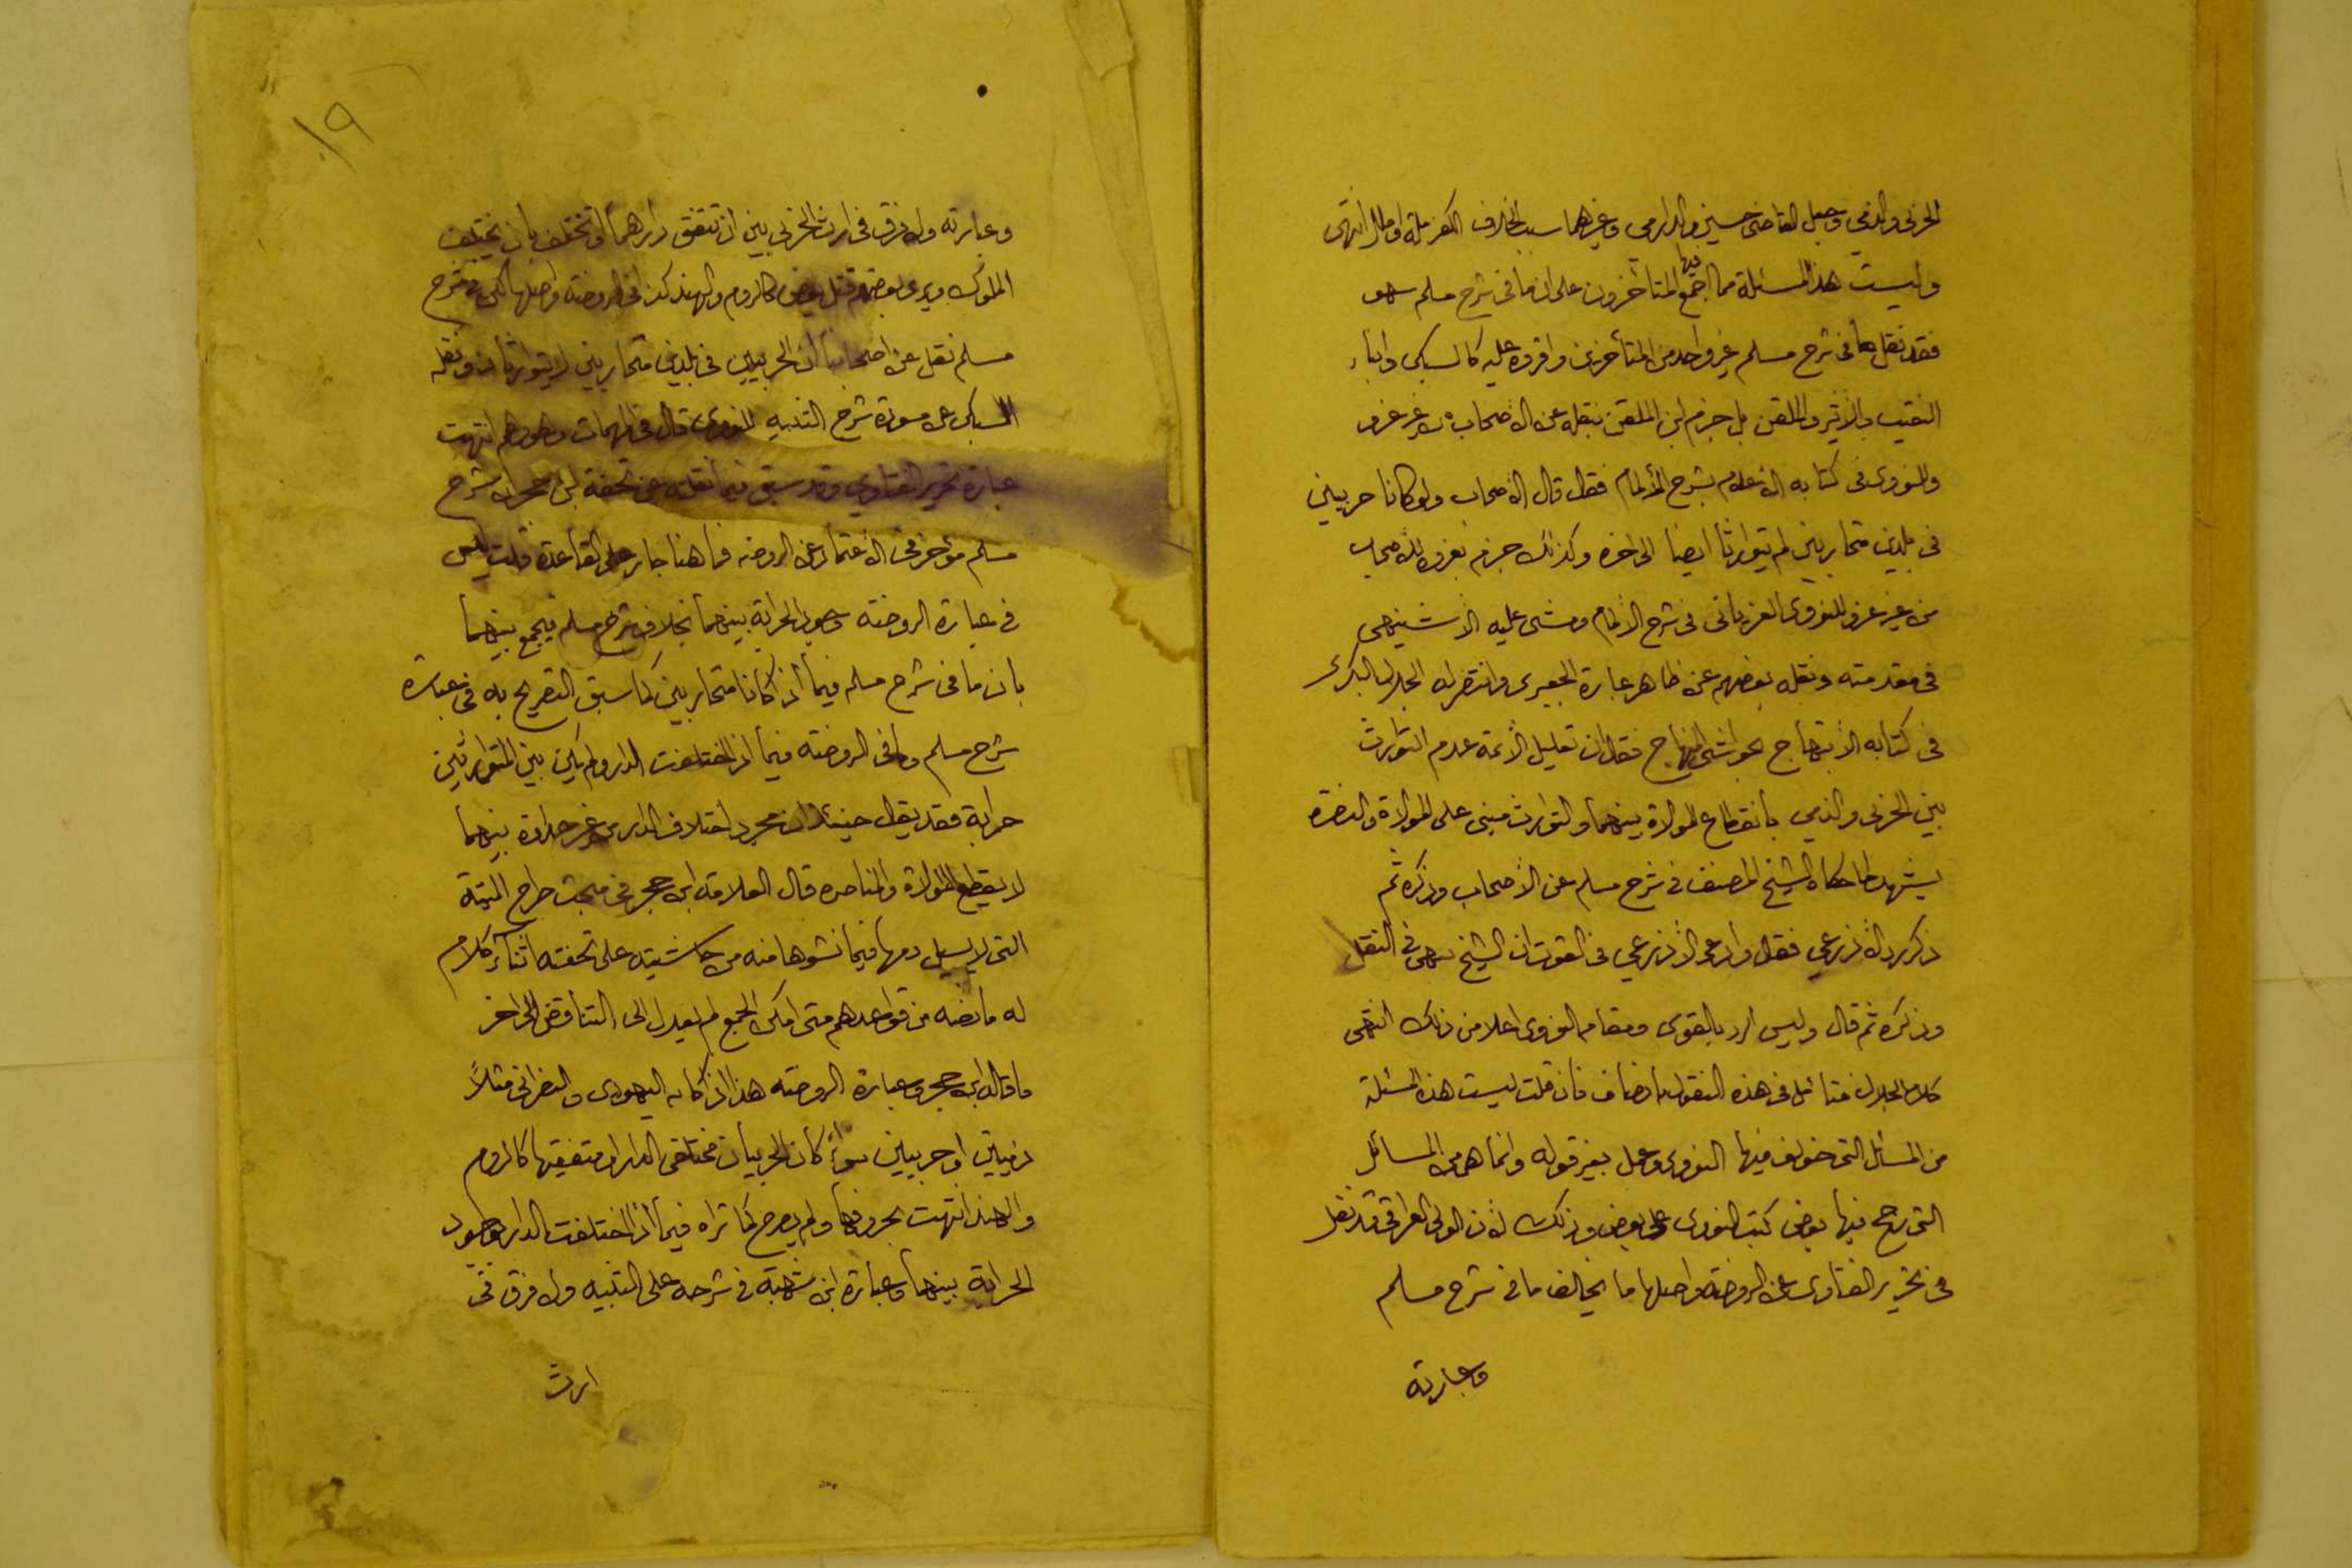 الحربي والذمي وجعل القاضي حسين والدارمي وغيرهما سبب الخلاف الكفر ملة او ملل انتهى
وليست هذا المسئلة مما اجمع فيها المتأخرون على ان ما في شرح مسلم سهو
فقد نقل ما في شرح مسلم غير واحد من المتأخرين واقروه عليه كالسبكي وابناء
النقيب والاثير والملقن بل جزم ابن الملقن بنقله عن الاصحاب من غير عزو
والنووى في كتابه الاعلام بشرح الالمام فقال قال الاصحاب ولو كانا حربيين
في بلدين متحاربين لم يتوارثا ايضا الى اخره وكذلك جزم بعزوه للاصحاب
من غير عزو للنووى العزيانى في شرح الالمام ومشى عليه الاشنهى
في مقدمته ونقله بعضهم عن ظاهر عبارة الجعبرى وانتصر له الجلال البكرى
في كتابه الابتهاج بحواشى المنهاج فقال ان تعليل الائمة عدم التوارث
بين الحربى والذمي بانقطاع الموالاة بينهما والتوارث مبنى على الموالاة والنصرة
يشهد لما حكاه الشيخ المصنف في شرح مسلم عن الاصحاب وذكره ثم
ذكر رد الاذرعي فقال وادعى الاذرعي في القوت ان الشيخ سهى في النقل
وذكره ثم قال وليس الرد بالقوى ومقام النووى اعلا من ذلك انتهى
كلام الجلال فتأمل في هذه النقول بانصاف فان قلت ليست هذه المسئلة
من المسائل التى خولف فيها النووى وعمل بغير قوله وانما هى من المسائل
التى رجح فيها بعض كتب النووى على بعض وذلك لان الولى العراقى قد نقل
في تحرير الفتاوى عن الروضة واصلها ما يخالف ما في شرح مسلم
وعبارته
١٩
وعبارته ولا فرق في ارث الحربى بين ان تتفق دارهما او تختلف بان يختلف
الملوك ويرى بعضهم قتل بعض كالروم والهند كذا في الروضة واصلها لكن في شرح
مسلم نقل عن اصحابنا ان الحربيين في بلدين متحاربين لا يتوارثان ونقله
السبكى عن مسودة شرح التنبيه للنووى قال في المهمات وهو وهم انتهت
عبارة تحرير الفتاوى وقد سبق فيما نقلته عن تحفة ابن حجر ان شرح
مسلم مؤخر في الاعتماد عن الروضه فما هنا جار على القاعدة قلت ليس
في عبارة الروضة وجود الحرابة بينهما بخلاف شرح مسلم فيجمع بينهما
بان ما في شرح مسلم فيما اذا كانا متحاربين كما سبق التصريح به في عبارة
شرح مسلم وما في الروضة فيما اذا اختلفت الدار ولم يكن بين المتوارثين
حرابة فقد يقال حينئذ ان مجرد اختلاف الدار من غير حرابة بينهما
لا يقطع الموالاة والمناصره قال العلامة ابن حجر في مبحث طرح الميتة
التى لا يسيل دمها فيما نشؤها منه من حاشيته على تحفته اثناء كلام
له ما نصه من قواعدهم متى امكن الجمع لم يعدل الى التناقض الى اخر
ما قاله ابن حجر وعبارة الروضه هذا اذا كان اليهودى والنصرانى مثلاً
ذميين او حربيين سواء كان الحربيان مختلفى الدار او متفقيها كالروم
والهند انتهت بحروفها ولم يصرح كما تراه فيما اذا اختلفت الدار بوجود
الحرابة بينهما وعبارة ابن شهبة في شرحه على التنبيه ولا فرق في
ارث